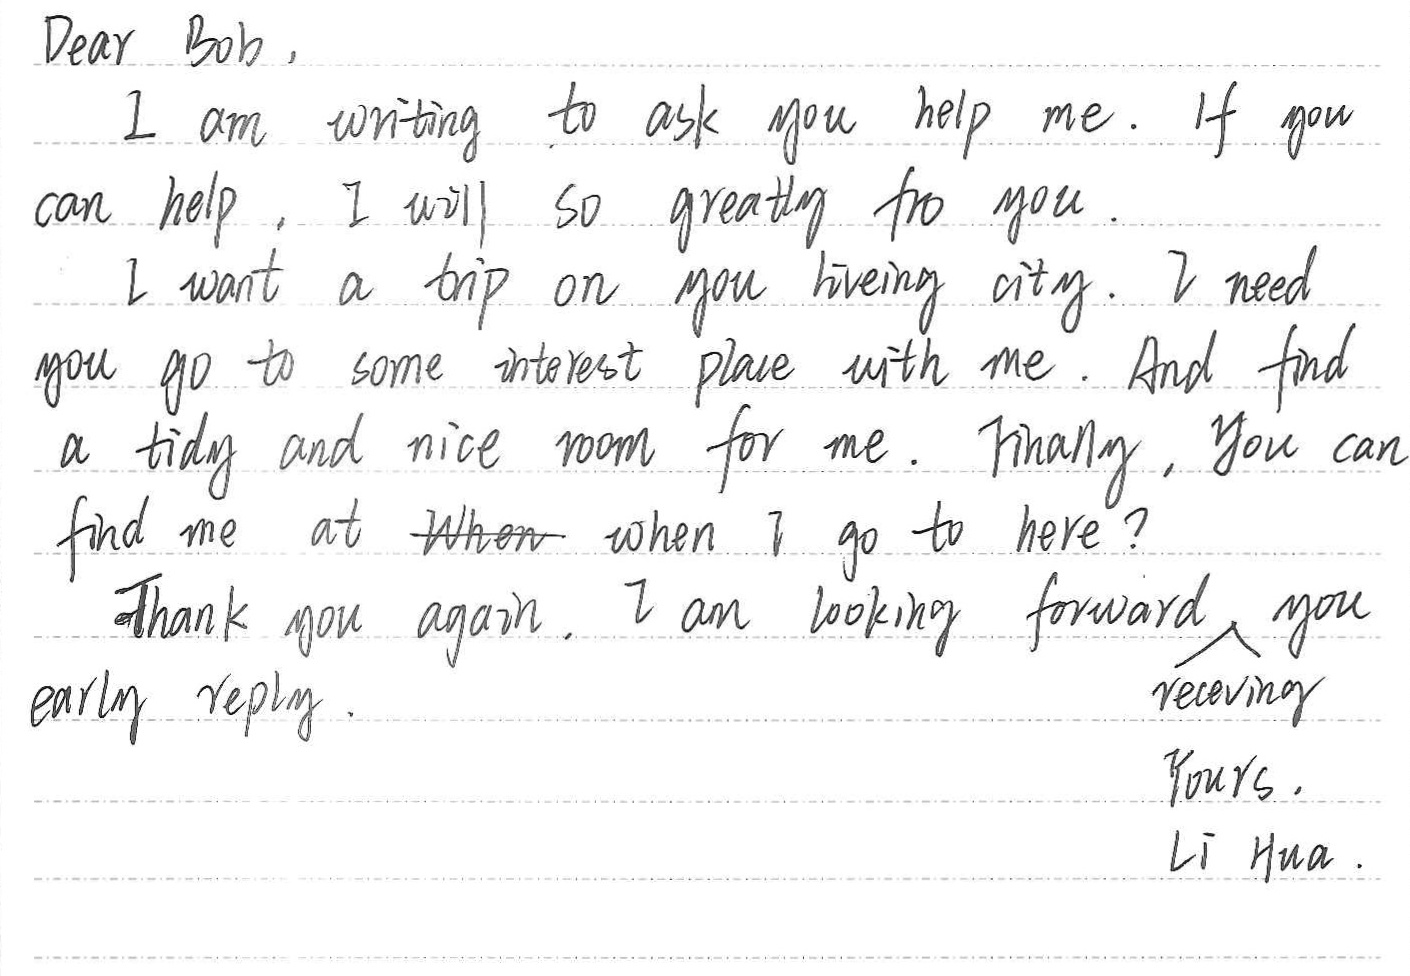 Dear Bob,
I am writing to ask you help me. If you
can help, I will so greatly fro you.
I want a trip on you liveing city. I need
you go to some interest place with me. And find
a tidy and nice room for me. Finally, You can
find me at When when I go to here?
Thank you again. I am looking forward you
early reply.
receving
Yours.
Li Hua.